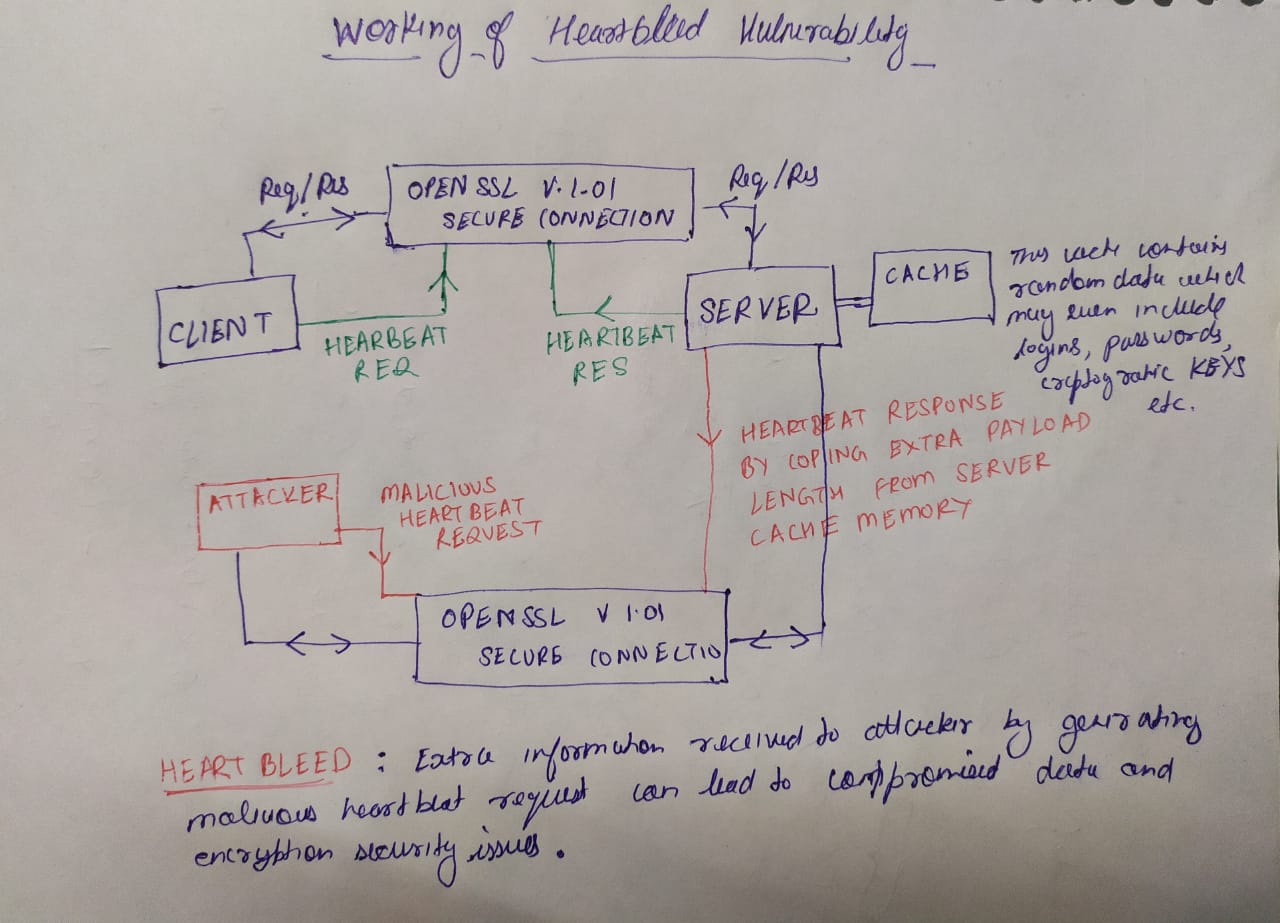 Working of Heartbleed Vulnerability
Req/Res
OPEN SSL V.1.01
SECURE CONNECTION
Req/Res
CLIENT
HEARBEAT
REQ
HEARTBEAT
RES
SERVER
CACHE
This cache contains
random data which
may even include
logins, passwords,
cryptograhic KEYS
etc.
HEARTBEAT RESPONSE
BY COPING EXTRA PAYLOAD
LENGTH FROM SERVER
CACHE MEMORY
ATTACKER
MALICIOUS
HEARTBEAT
REQUEST
OPENSSL V 1.01
SECURE CONNECTIO
HEART BLEED : Extra information received to attacker by generating
malicious heartbeat request can lead to compromised data and
encryption security issues.